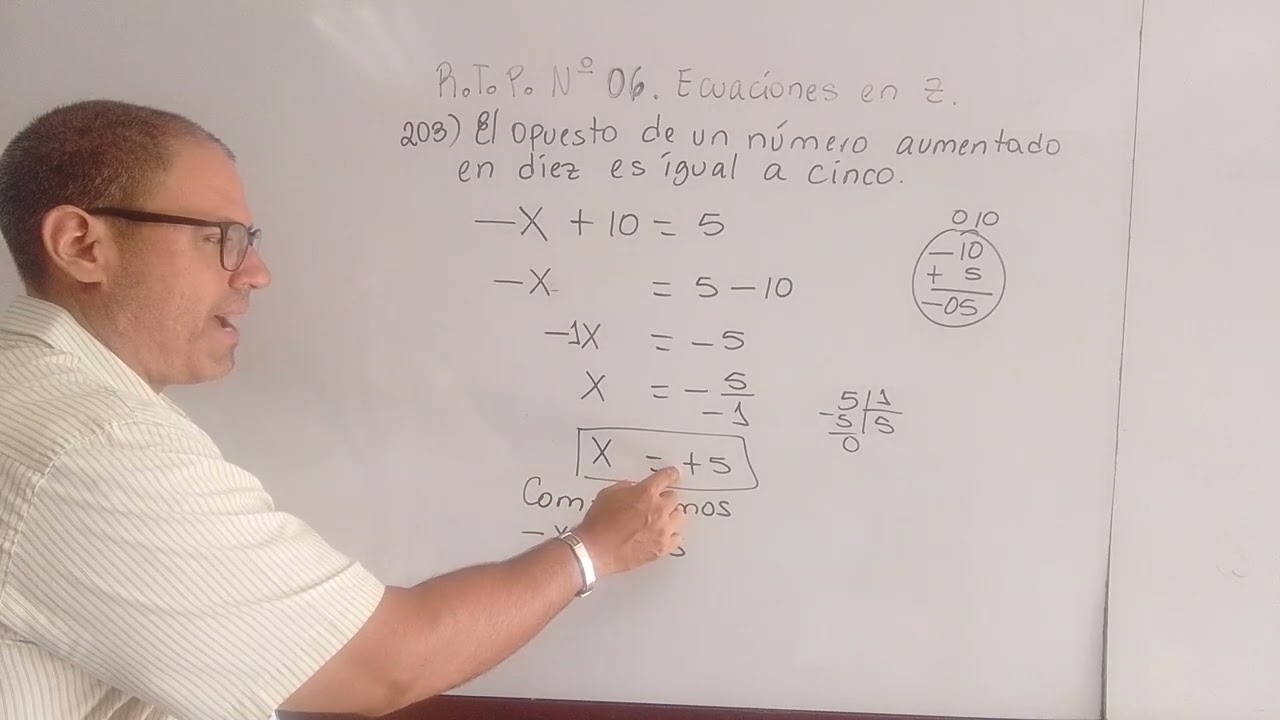 R.T.P. Nº 06. Ecuaciones en Z.
203) El opuesto de un número aumentado
en diez es igual a cinco.
-X + 10 = 5
-X = 5 - 10
-1X = -5
X = - 5
-1
X = +5
-X
0 10
-10
+ 5
-05
5 1
-5 5
0